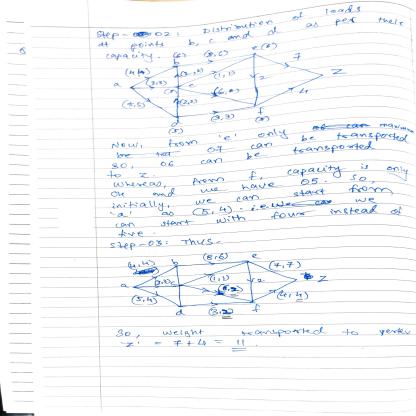 Step-02: Distribution of loads
at points b, c and d as per their
capacity.
(6) (8,6) e (8)
b 7
(4,4) (3,3) (1,1) 2 Z
a (3,3) c (6,6) 4
(5,5) (2,2)
d (3,3) f
(5) (5)
Now, from 'e' only
07 can be transported
so, 06 can be transported
to z.
Whereas, from f, capacity is only
04 and we have 05. So,
initially, we can start from
'a' as (5,4) i.e. we
can start with four instead of
five.
Step-03: Thus,
(4,4) b (8,6) e (7,7)
a c (1,1) 2 Z
(5,4) (4,4)
d (3,2) f
So, weight transported to vertex
'z' = 7+4 = 11